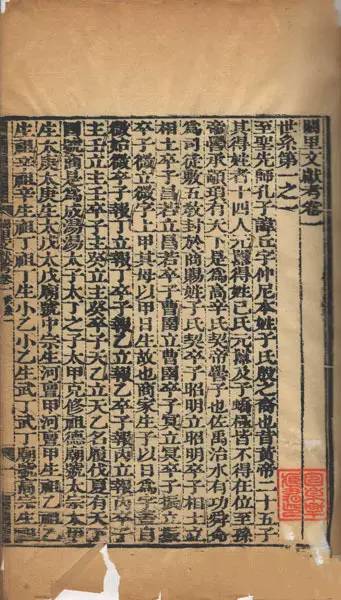 闕里文獻考卷一
世系第一之一
至聖先師孔子諱丘字仲尼本姓子氏殷之裔也昔黃帝二十五子
其得姓者十四人元囂得姓己氏元囂及子蟜極皆不得在位至孫
帝嚳承顓頊有天下是爲高辛氏契帝嚳子也佐禹治水有功舜命
爲司徒敷五教封於商賜姓子氏契卒子昭明立昭明卒子相土立
相土卒子昌若立昌若卒子曹圉立曹圉卒子冥立冥卒子振立振
卒子微立微字上甲其母以甲日生故也商家生子以日爲名自
微始微卒子報丁立報丁卒子報乙立報乙卒子報丙立報丙卒子
主壬立主壬卒子主癸立主癸卒子天乙立天乙名履伐夏有天下
國號商是爲成湯湯太子太丁太丁之子太甲克修祖德廟號太宗太甲
生太庚太庚生太戊太戊廟號中宗生河亶甲河亶甲生祖乙祖乙
生祖辛祖辛生祖丁祖丁生小乙小乙生武丁武丁廟號高宗生